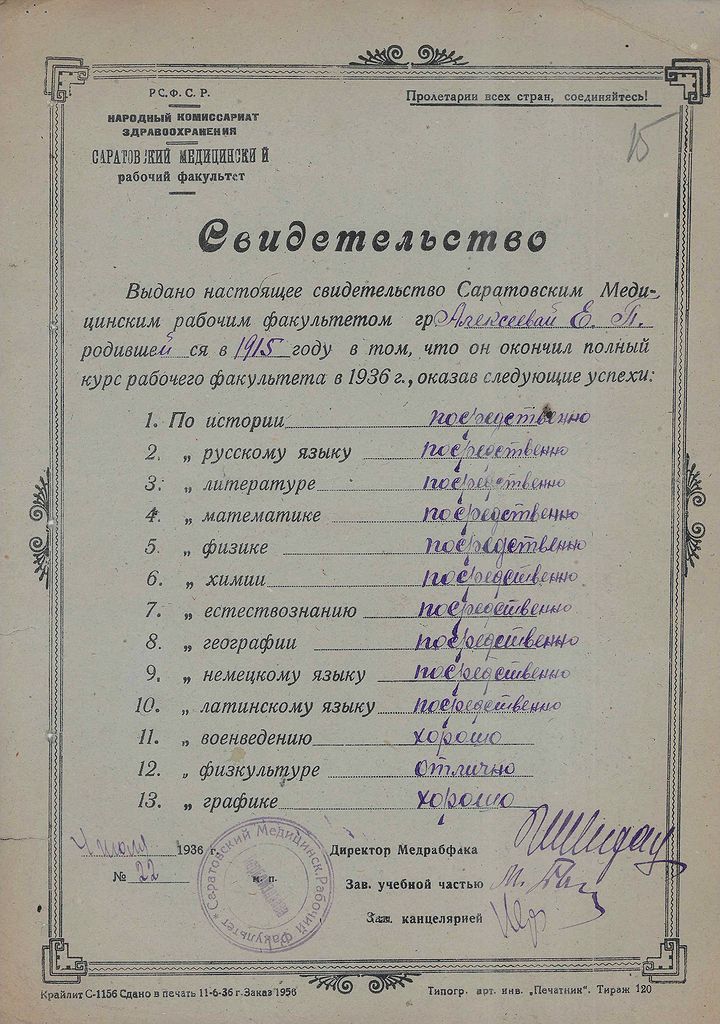 Р.С.Ф.С.Р.
НАРОДНЫЙ КОМИССАРИАТ
ЗДРАВООХРАНЕНИЯ
САРАТОВСКИЙ МЕДИЦИНСКИЙ
рабочий факультет
Пролетарии всех стран, соединяйтесь!
15
Свидетельство
Выдано настоящее свидетельство Саратовским Меди-
цинским рабочим факультетом гр. Алексеевай Е. П.
родившей ся в 1915 году в том, что он окончил полный
курс рабочего факультета в 1936 г., оказав следующие успехи:
1. По истории посредственно
2. „ русскому языку посредственно
3. „ литературе посредственно
4. „ математике посредственно
5. „ физике посредственно
6. „ химии посредственно
7. „ естествознанию посредственно
8. „ географии посредственно
9. „ немецкому языку посредственно
10. „ латинскому языку посредственно
11. „ военведению хорошо
12. „ физкультуре отлично
13. „ графике хорошо
1936 г.
№ 22
м. п.
Саратовский Медицинск. Рабочий Факультет
Директор Медрабфака
Зав. учебной частью
Зав. канцелярией
Крайлит С-1156 Сдано в печать 11-6-36 г. Заказ 1956
Типогр. арт. инв. „Печатник". Тираж 120